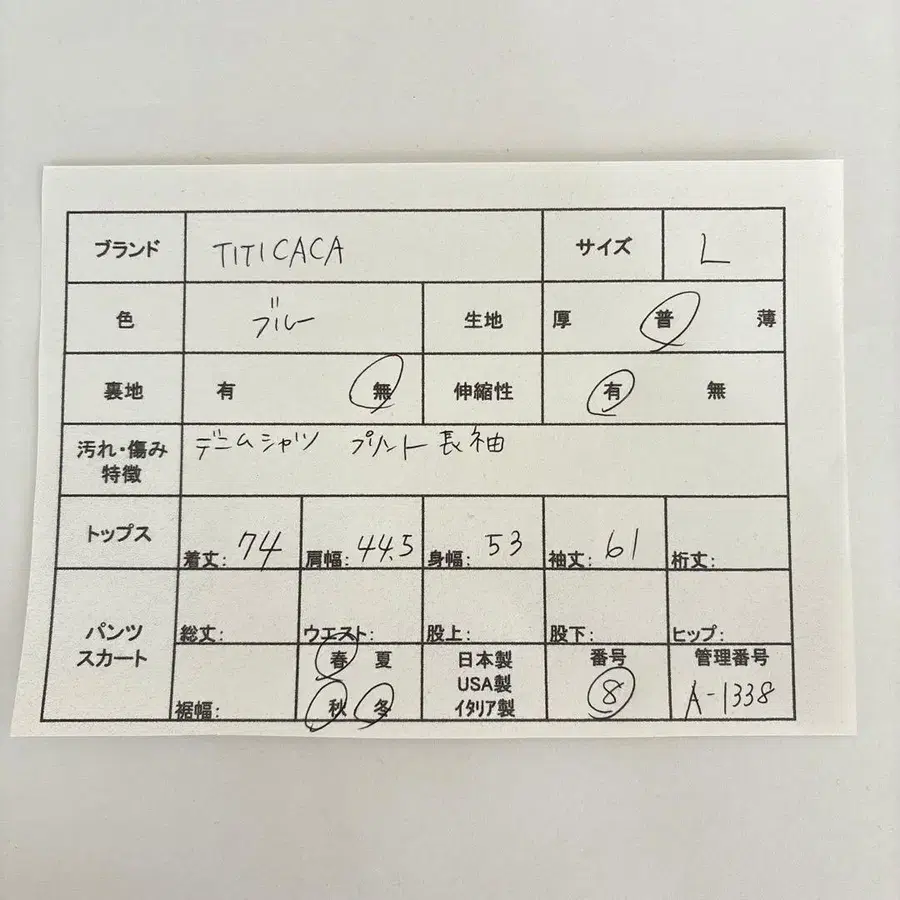 ブランド TITICACA サイズ L
色 ブルー 生地 厚 普 薄
裏地 有 無 伸縮性 有 無
汚れ・傷み
特徴
デニムシャツ プリント長袖
トップス 着丈: 74 肩幅: 44.5 身幅: 53 袖丈: 61 裄丈:
パンツ
スカート
総丈: ウエスト: 股上: 股下: ヒップ:
裾幅:
春 夏
秋 冬
日本製
USA製
イタリア製
番号
8
管理番号
A-1338